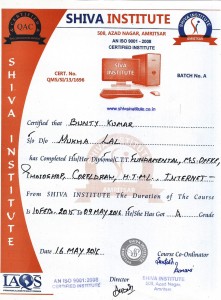 SHIVA INSTITUTE
508, AZAD NAGAR, AMRITSAR
AN ISO 9001 - 2008
CERTIFIED INSTITUTE
QAC
CERT. No.
QMS/SI/13/1698
BATCH No. A
www.shivainstitute.co.in
SHIVA INSTITUTE
Certified that BUNTY KUMAR
S/o D/o MUKHA LAL
has Completed His/Her Diploma I.T. FUNDAMENTAL, M.S. OFFICE,
PHOTOSHOP, CORELDRAW, H.T.M.L. INTERNET
From SHIVA INSTITUTE The Duration of The Course
is 10 FEB. 2015 TO 09 MAY 2016 He/She Has Got A Grade
Date 16 MAY 2016
Course Co-Ordinator
IAQS
AN ISO 9001:2008
CERTIFIED INSTITUTE
Director
SHIVA INSTITUTE
508, AZAD Nagar,
Amritsar